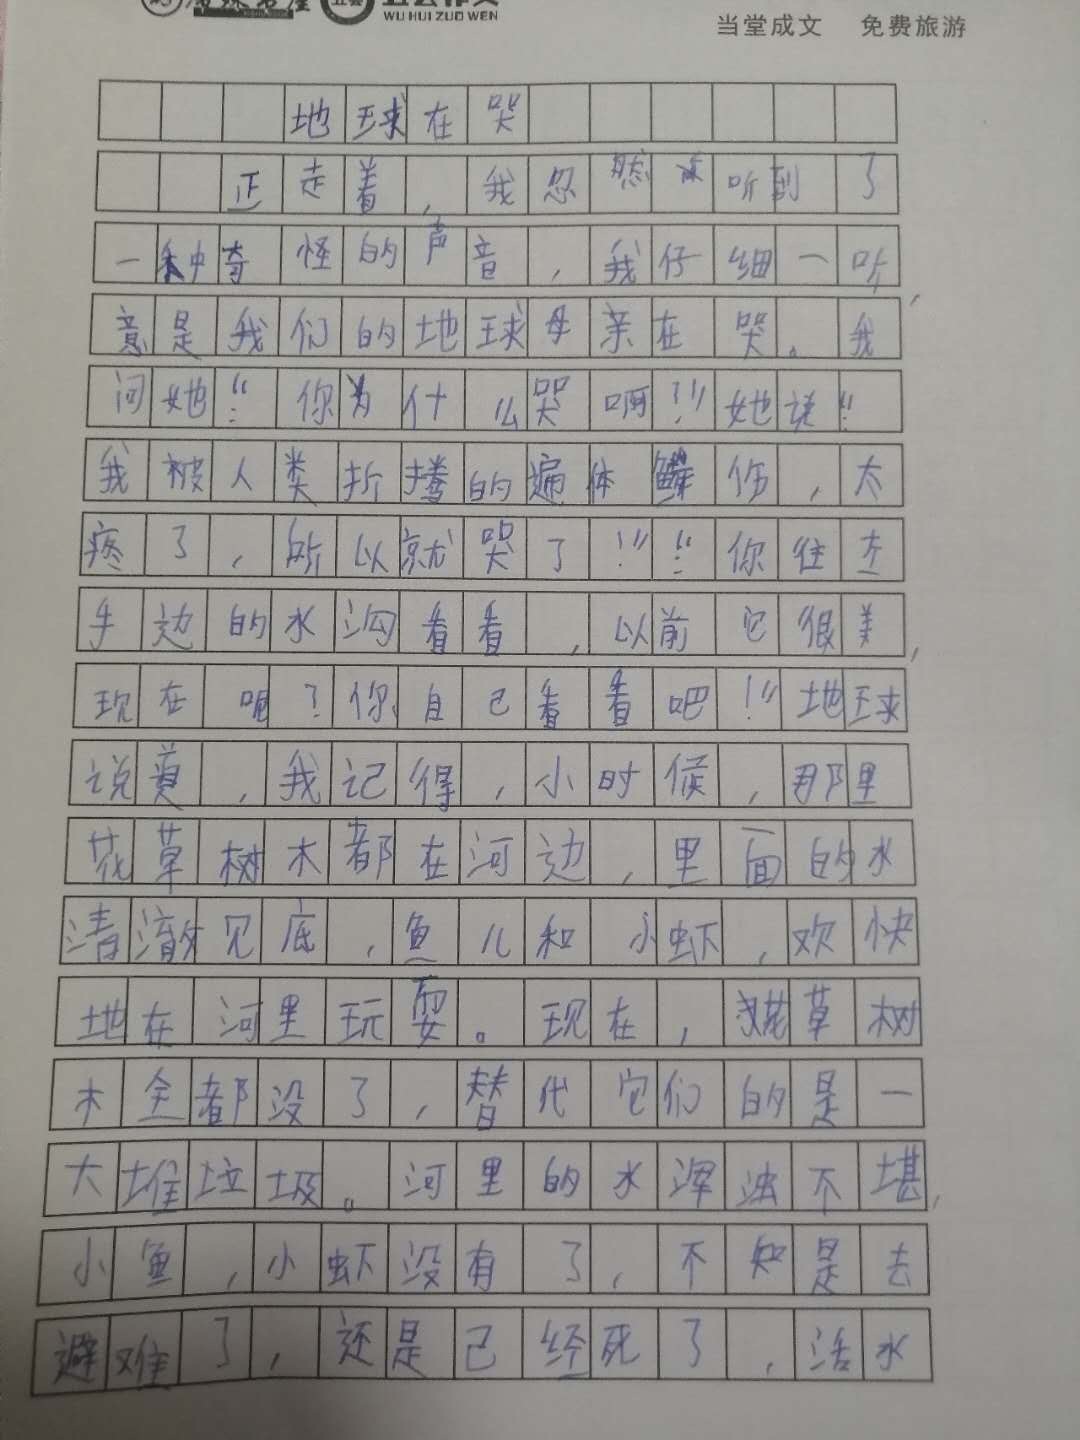 WU HUI ZUO WEN
当堂成文 免费旅游
地球在哭
正走着，我忽然听到了
一种奇怪的声音，我仔细一听，
意是我们的地球母亲在哭。我
问她：“你为什么哭啊？”她说：“
我被人类折的遍体伤，太
疼了，所以就哭了！”“你往左
手边的水沟看看，以前它很美，
现在呢？你自己看看吧！”地球
说，我记得，小时候，那里
花草树木都在河边，里面的水
清澈见底，鱼儿和小虾，欢快
地在河里玩耍。现在，草树
木全都没了，替代它们的是一
大堆垃圾。河里的水浑浊不堪，
小鱼，小虾没有了，不知是去
避难了，还是已经死了，活水